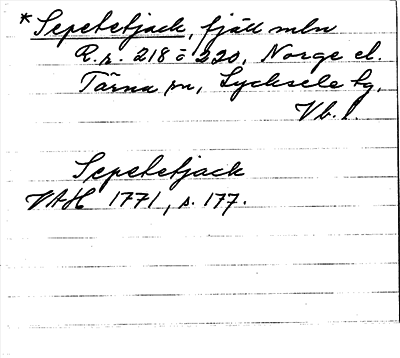 * Sepetetjack, fjäll mln
R.r. 218 o 220, Norge el.
Tärna sn, Lycksele lg,
Vb. l.
Sepetetjack
VAH 1771, s. 177.